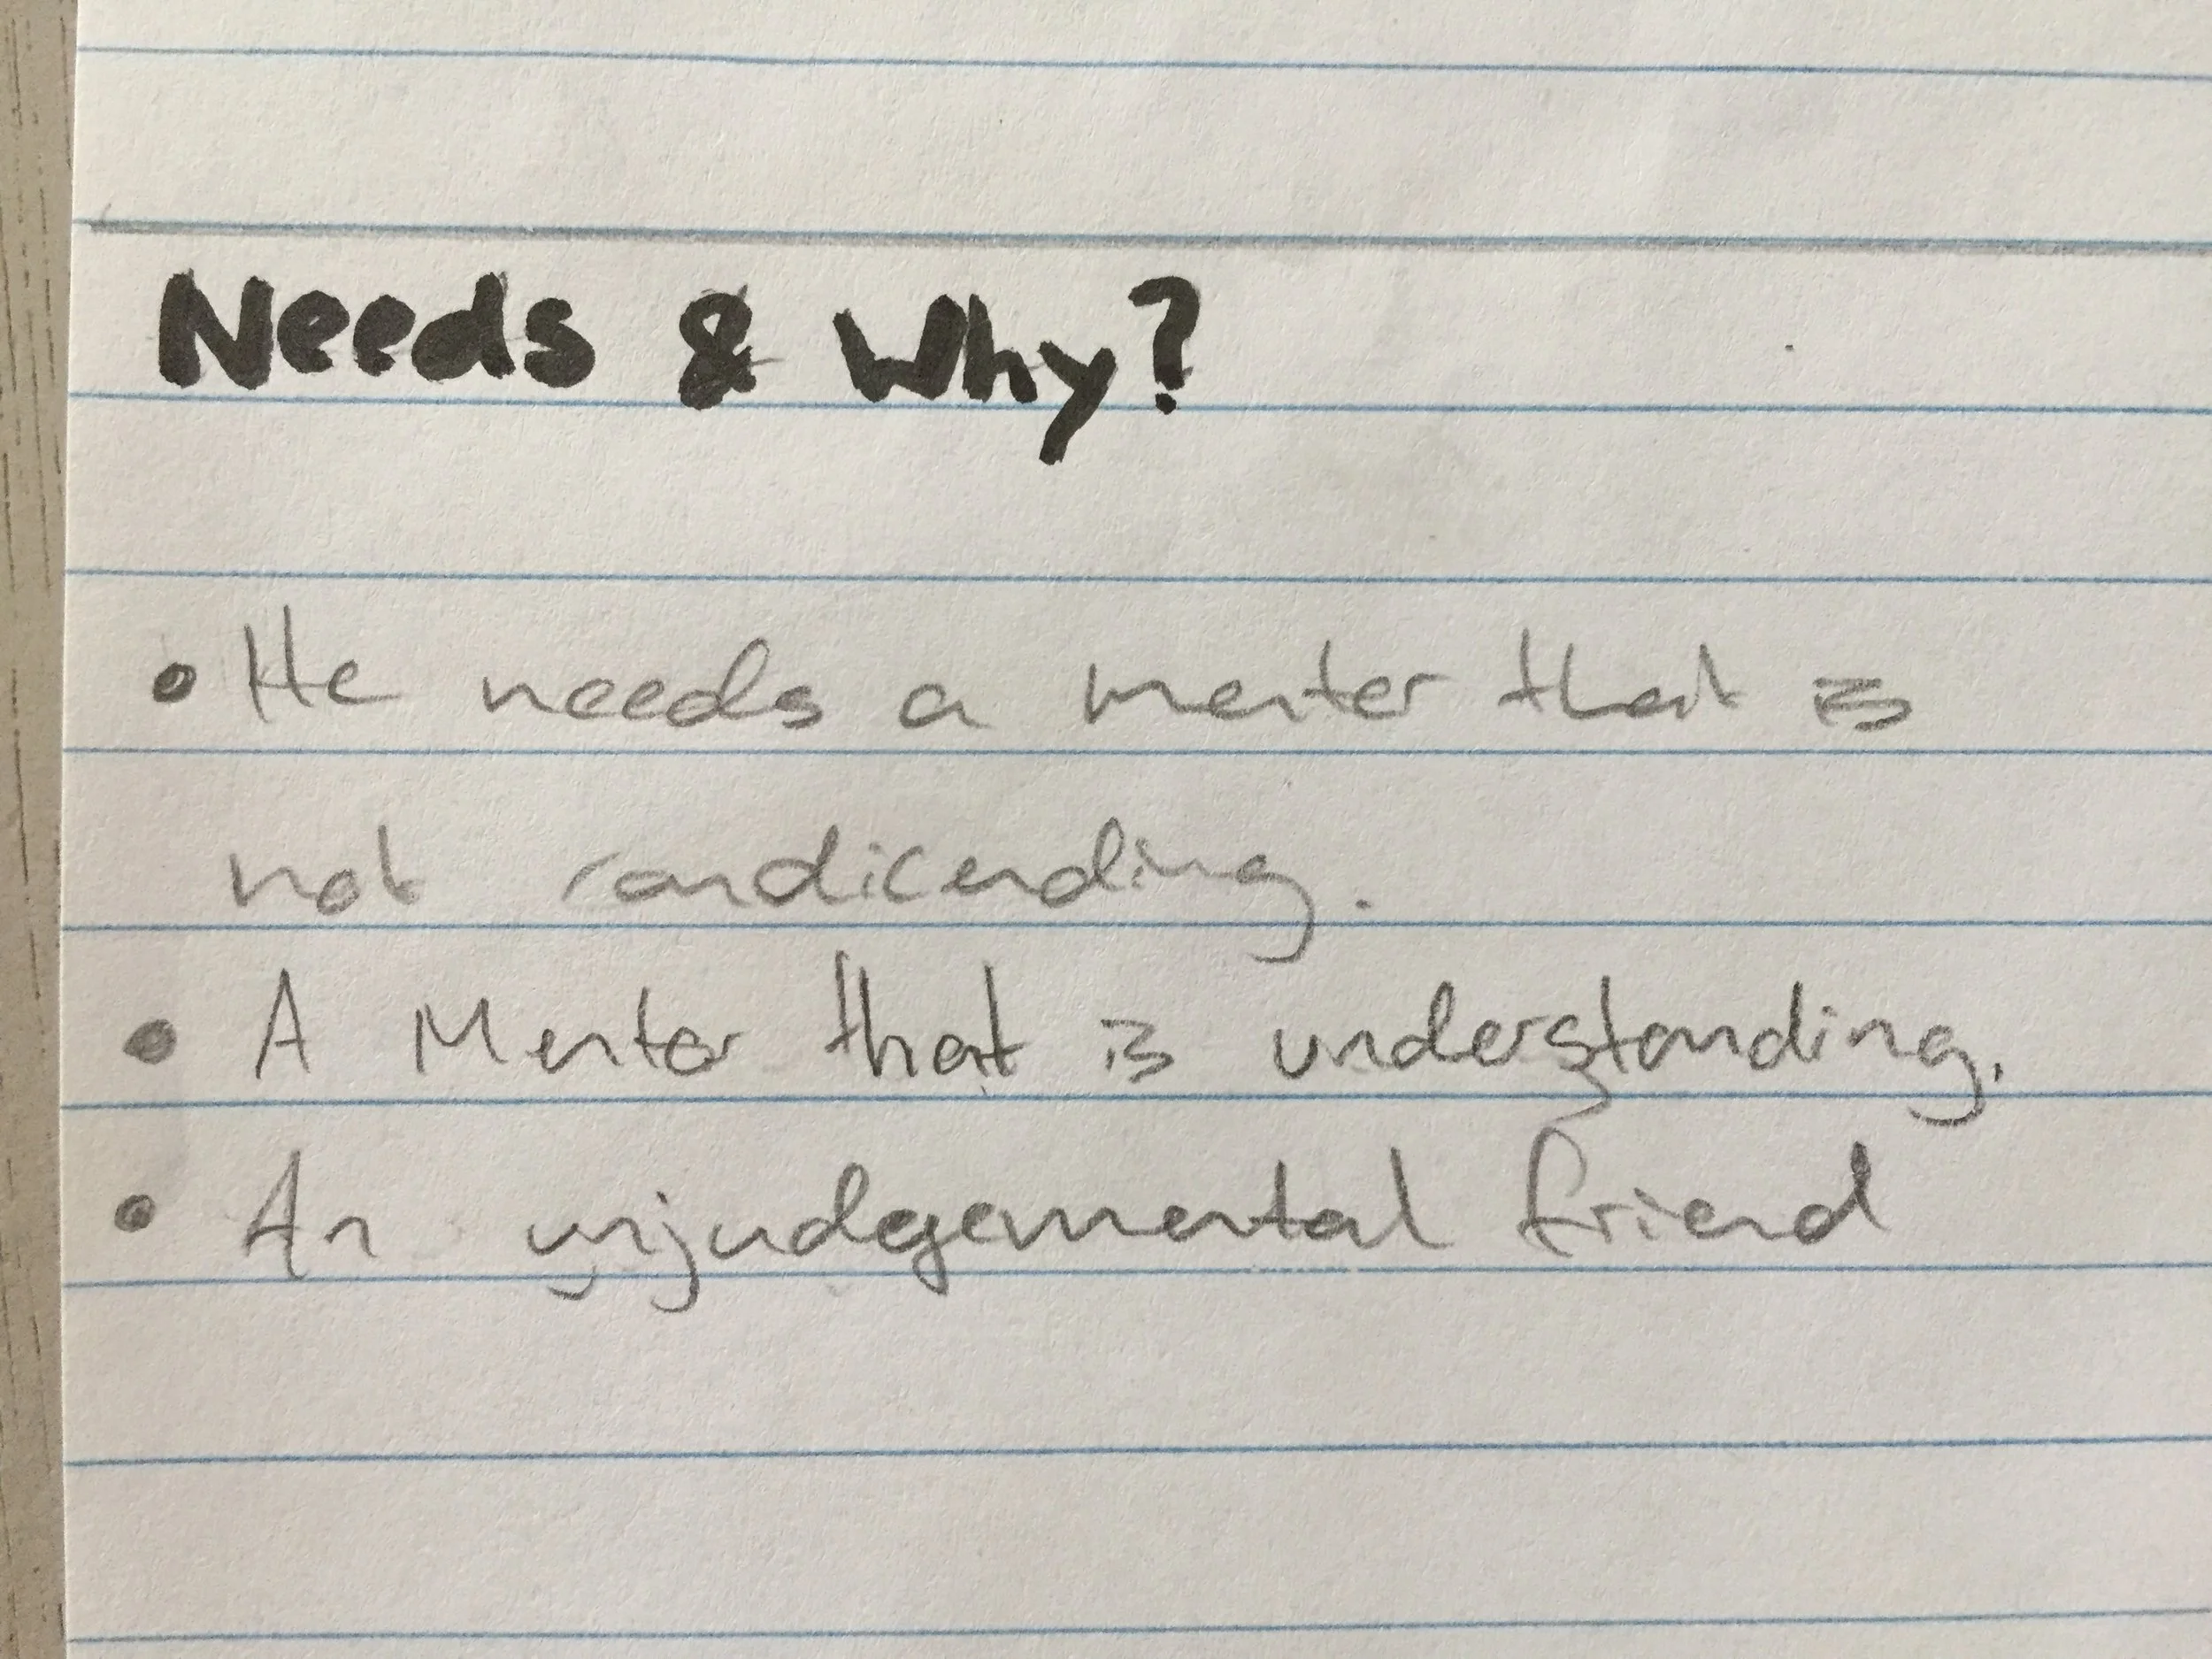 Needs & Why?
• He needs a mentor that is
not condicending.
• A Mentor that is understanding.
• An unjudgemental friend